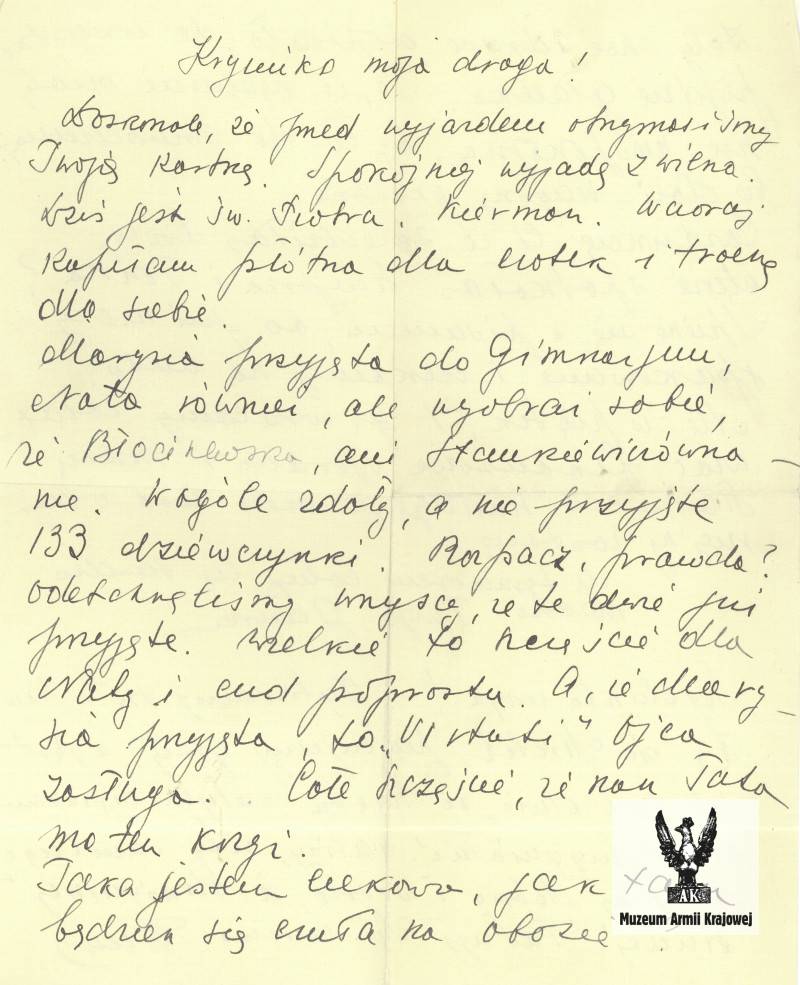 Krysieńko moja droga!
Doskonale, że przed wyjazdem otrzymaliśmy
Twoją kartkę. Spokojniej wyjadę z Wilna.
Dziś jest św. Piotra. Kiermasz. Wczoraj
kupiłam płótna dla ciotek i trochę
dla siebie.
Marysia przyjęta do Gimnazjum,
Nata również, ale wyobraź sobie,
że Błociszewska, ani Stankiewiczówna –
nie. Wogóle zdały, a nie przyjęte
133 dziewczynki. Rozpacz, prawda?
Odetchnęliśmy wszyscy, że te dwie już
przyjęte. Wielkie to szczęście dla
Naty i cud poprostu. A, że Mary-
sia przyjęta, to „Virtuti" Ojca
zasługa. Całe szczęście, że nasz Tata
ma ten krzyż.
Taka jestem ciekawa, jak tam
będziesz się czuła na obozie
AK
Muzeum Armii Krajowej